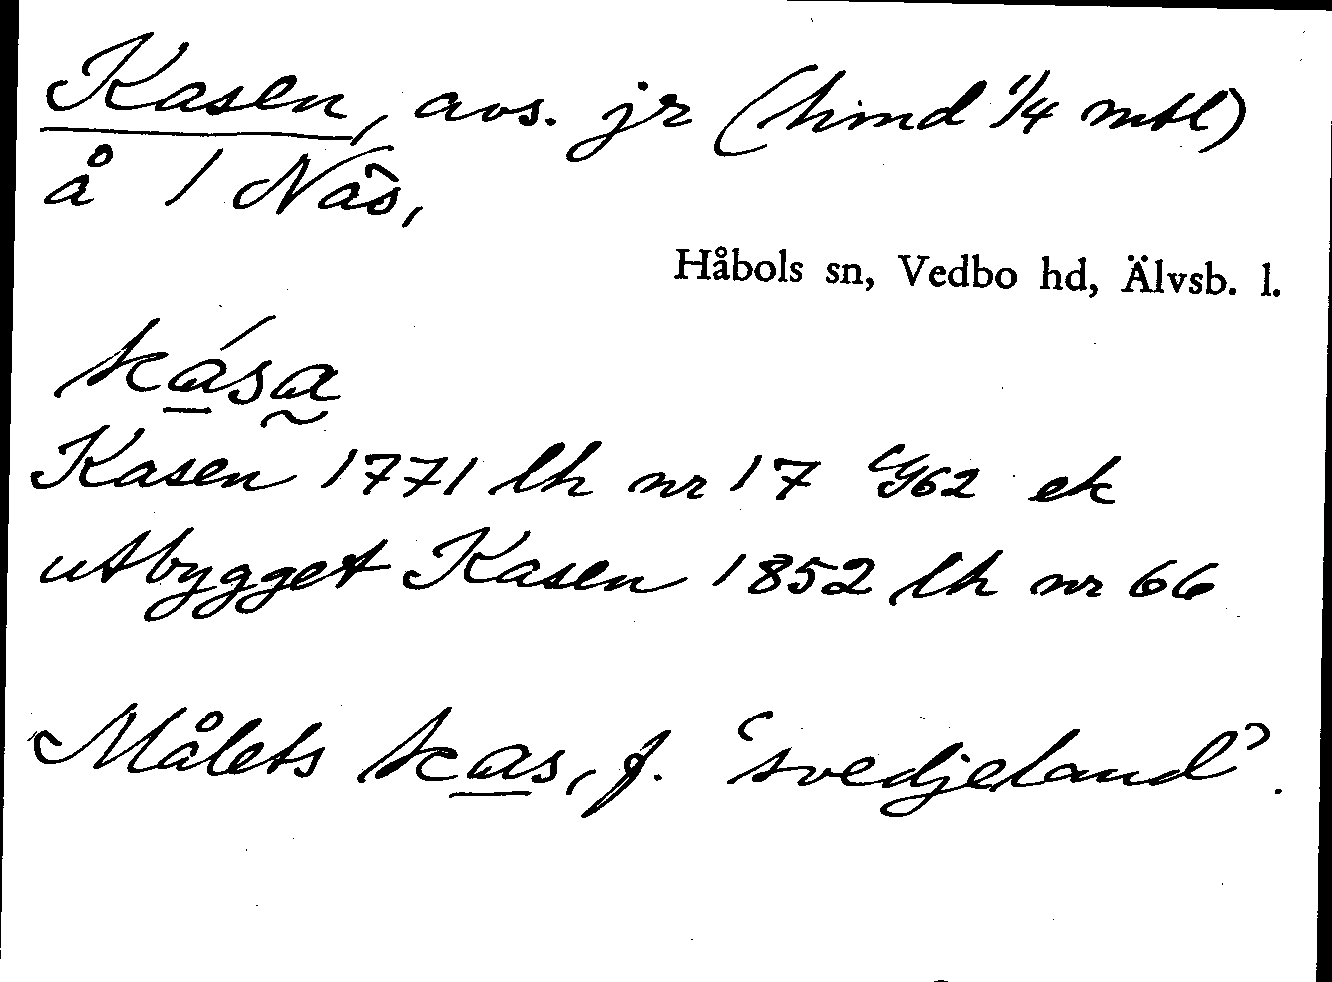 Kasen, avs. jr (hmd 1/4 mtl)
å 1 Näs,
Håbols sn, Vedbo hd, Älvsb. l.
kása
Kasen 1771 lh nr 17 ek
utbygget Kasen 1852 lh nr 66
Målets kas, f. ‘svedjeland’.